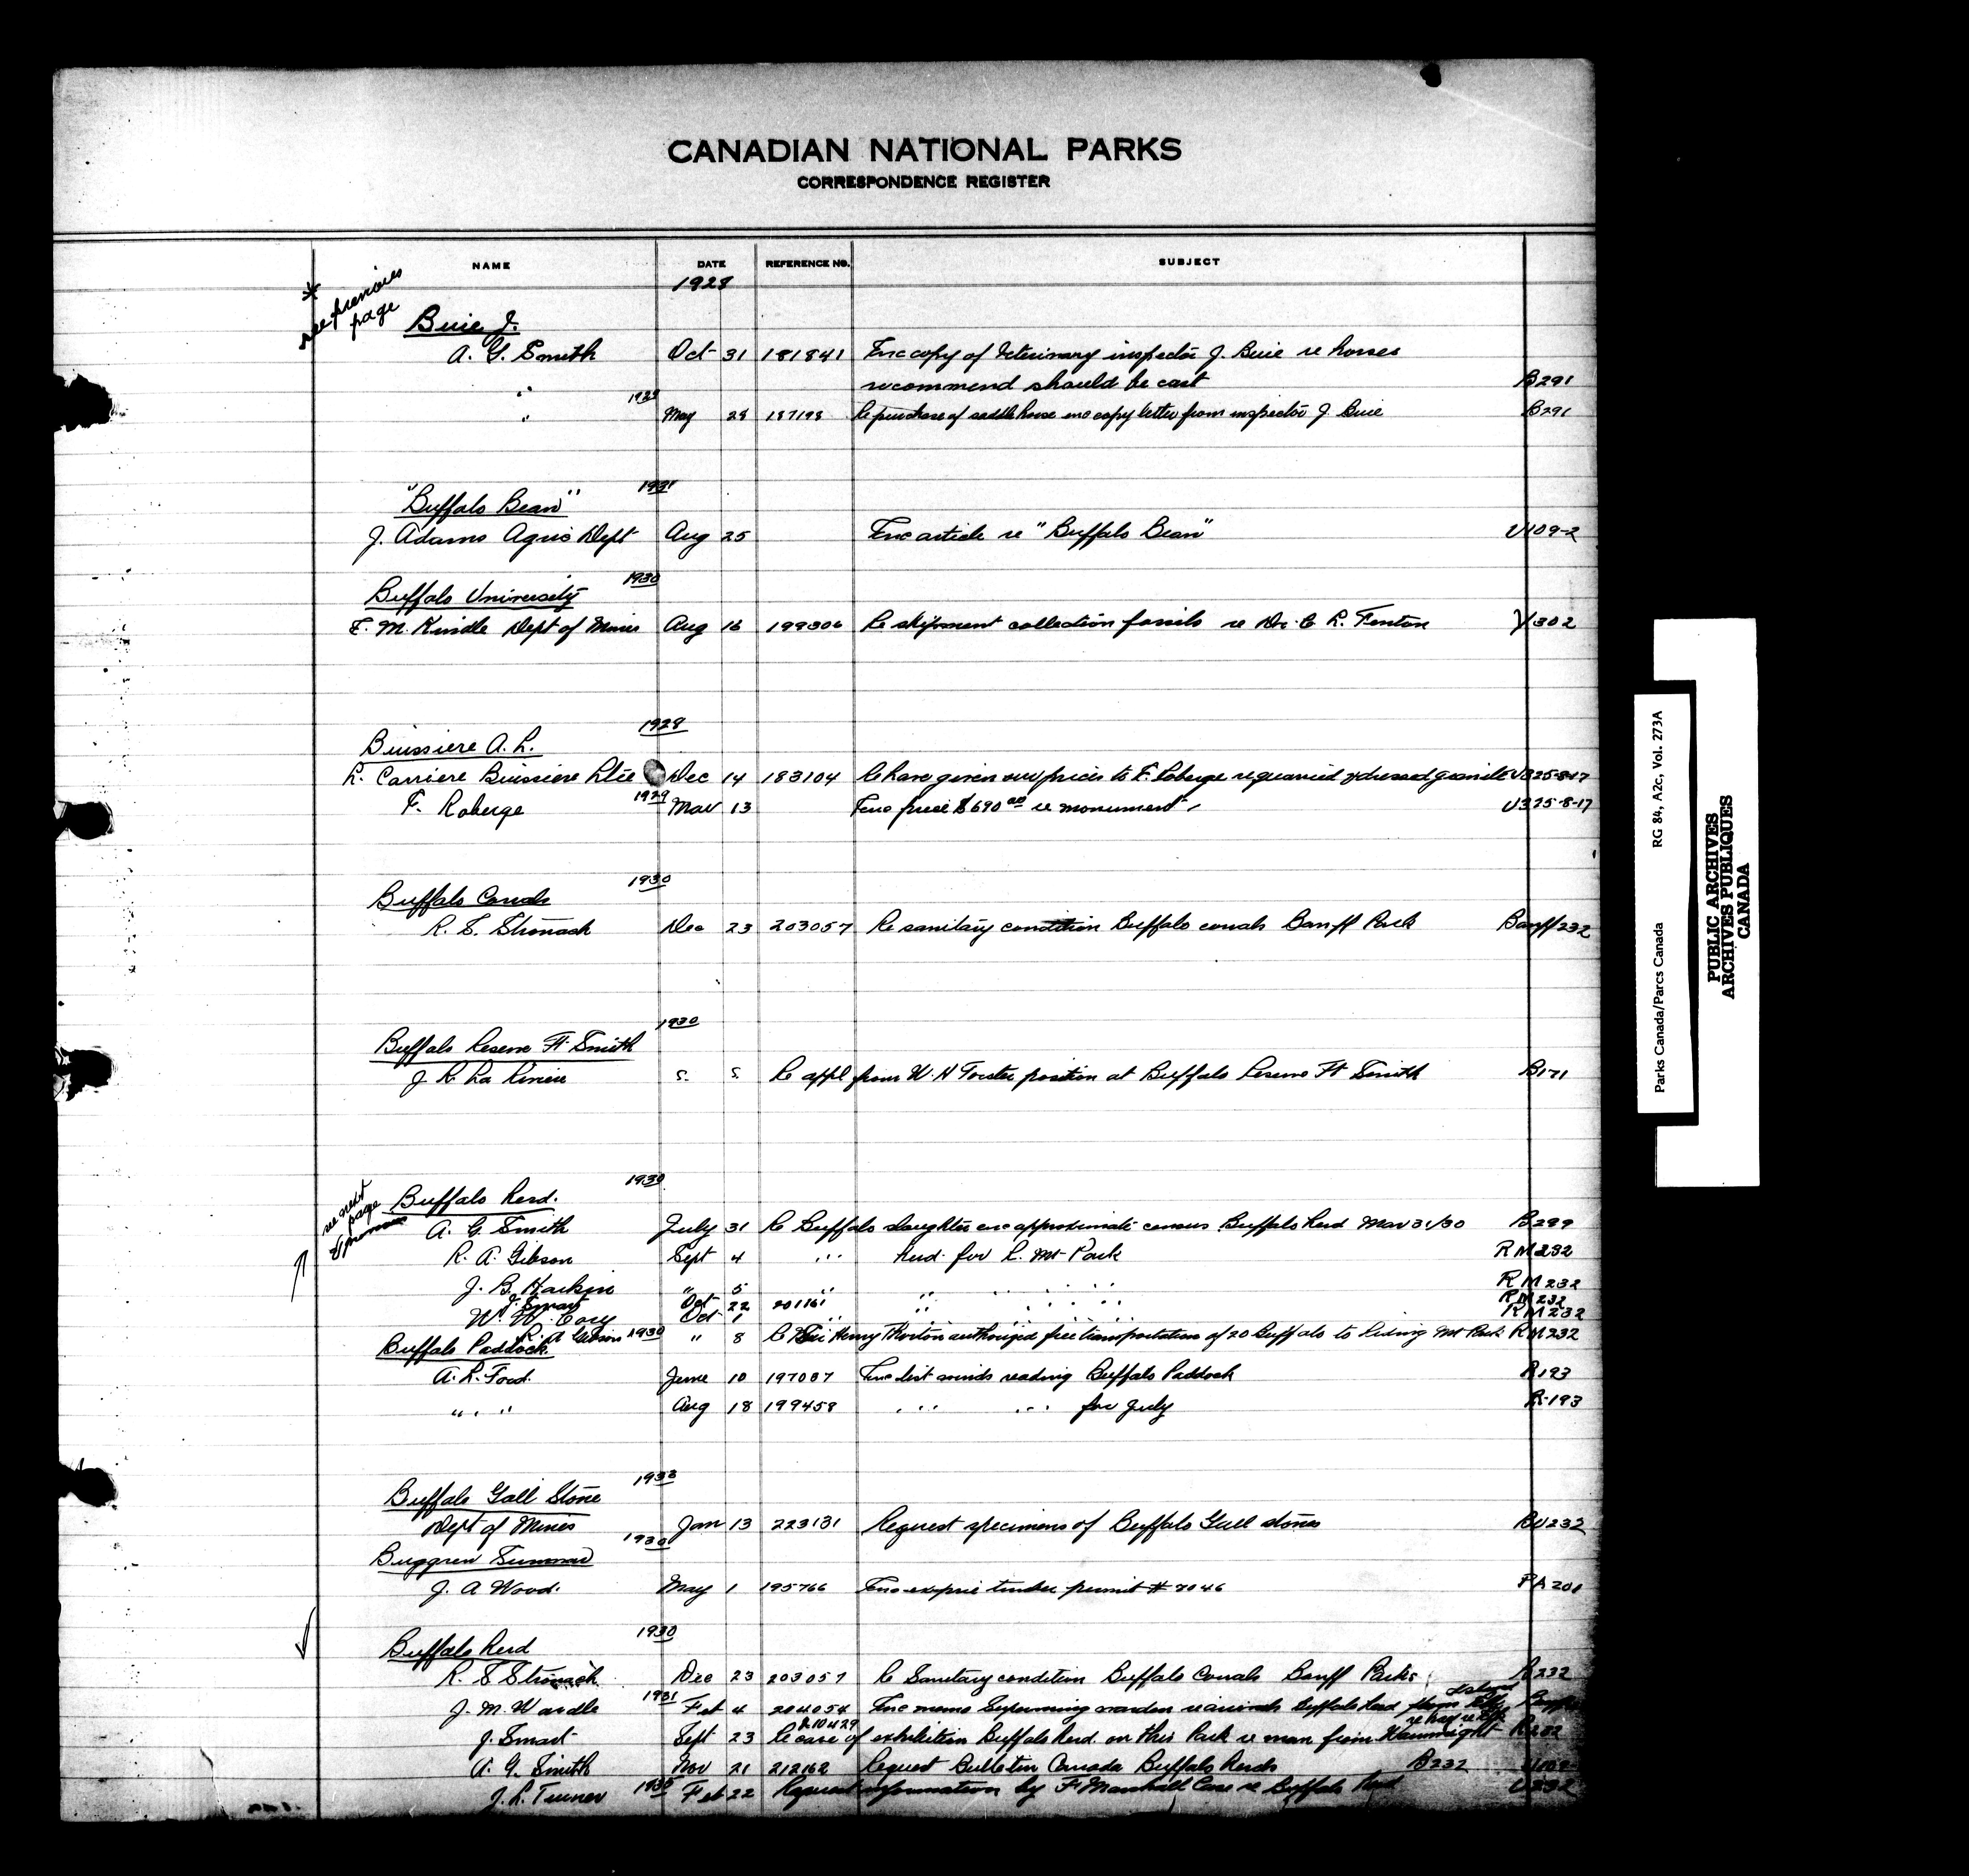 CANADIAN NATIONAL PARKS
CORRESPONDENCE REGISTER
NAME DATE REFERENCE NO. SUBJECT
1928
* see previous page
Buie J.
A. G. Smith Oct 31 181841 Enc copy of Veterinary inspector J. Buie re horses
recommend should be cast B291
" 1929
" May 28 187198 Re purchase of saddle horse enc copy letter from inspector J. Buie B291
"Buffalo Bean" 1931
J. Adams Agric Dept Aug 25 Enc article re "Buffalo Bean" U109-2
Buffalo University 1930
E. M. Kindle Dept of Mines Aug 16 199306 Re shipment collection fossils re Dr. C. L. Fenton Y302
Bussiere A. L. 1928
L. Carriere Bussiere Ltée Dec 14 183104 Re have given our prices to F. Roberge re quarried & dressed granite U325-8-17
F. Roberge 1929 Mar 13 Enc price $690.00 re monument U325-8-17
Buffalo Corrals 1930
R. S. Stronach Dec 23 203057 Re sanitary condition Buffalo corrals Banff Park Banff 232
Buffalo Reserve Ft. Smith 1930
J. R. La Riviere 5. 5. Re appl from W. H. Foster position at Buffalo Reserve Ft Smith B171
see next page
Buffalo Herd. 1930
A. G. Smith July 31 Re Buffalo slaughter enc approximate census Buffalo herd Mar 31/30 B299
R. A. Gibson Sept 4 " herd for R. Mt Park RM232
J. B. Harkin " 5 " " " " " RM232
J. Smart Oct 22 201161 " " " " RM232
W. W. Cory Oct 1 " " " " RM232
R. A. Gibson 1930 " 8 Re Sir Henry Thorton authorized free transportation of 20 Buffalo to Riding Mt Park RM232
Buffalo Paddock
A. L. Ford June 10 197087 Enc list animals reading Buffalo Paddock R193
" " " Aug 18 199458 " " for July R-193
Buffalo Gall Stone 1933
Dept of Mines Jan 13 223131 Request specimens of Buffalo Gall stones BU232
Buggren Gunnar 1930
J. A. Wood. May 1 195766 Enc expire timber permit # 7046 PA200
Buffalo Herd 1930
R. S. Stronach Dec 23 203057 Re Sanitary condition Buffalo Corrals Banff Park B232
J. M. Wardle 1931 Feb 4 204054 Enc memo Supervising warden re animals Buffalo herd
J. Smart Sept 23 210429 Re case of exhibition Buffalo herd on this Park re man from Wainwright R232
A. G. Smith Nov 21 212162 Request Bulletin Canada Buffalo Herds B232 U109
J. L. Turner 1935 Feb 22 Request information by F Marshall Case re Buffalo Herd U232
Parks Canada/Parcs Canada RG 84, A2c, Vol. 273A
PUBLIC ARCHIVES
ARCHIVES PUBLIQUES
CANADA